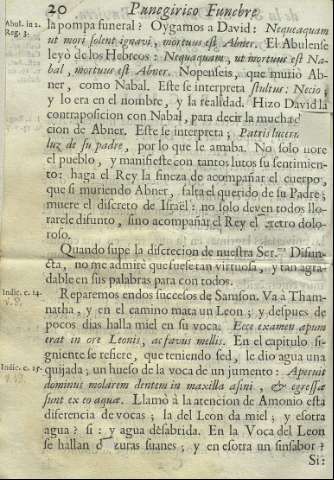 20 Panegirico Funebre
Abul. in 2.
Reg. 3.
la pompa funeral? Oygamos a David: Nequeaquam
ut mori solent ignavi, mortuus est Abner. El Abulense
leyò de los Hebreos: Nequaquam, ut mortuus est Na-
bal, mortuus est Abner. Nopenseis, que muriò Ab-
ner, como Nabal. Este se interpreta stultus: Necio;
y lo era en el nombre, y la realidad. Hizo David la
contraposicion con Nabal, para decir la mucha
cion de Abner. Este se interpreta; Patris lucern
luz de su padre, por lo que le amaba. No solo llore
el pueblo, y manifieste con tantos lutos su sentimien-
to: haga el Rey la fineza de acompañar el cuerpo,
que si muriendo Abner, falta el querido de su Padre;
muere el discreto de Israèl: no solo deven todos llo-
rarele difunto, sino acompañar el Rey el feretro dolo-
roso.
Quando supe la discrecion de nuestra Ser.ma Difun-
cta, no me admirè que fuese tan virtuosa, y tan agra-
dable en sus palabras para con todos.
Iudic. c. 14.
v. 8.
Reparemos en dos succesos de Samson. Va à Tham-
natha, y en el camino mata un Leon; y despues de
pocos dias halla miel en su voca. Ecce examen apum
erat in ore Leonis, ac favus mellis. En el capitulo si-
gniente se refiere, que teniendo sed, le dio agua una
Iudic. c. 15.
quijada; un hueso de la voca de un jumento: Aperuit
dominus molarem dentem in maxilla asini, & egressæ
sunt ex eo aquæ. Llamò à la atencion de Amonio esta
diferencia de vocas; la del Leon da miel; y esotra
agua? si: y agua dèsabrida. En la Voca del Leon
se hallan zuras; y en esotra un sinsabor?
Si: